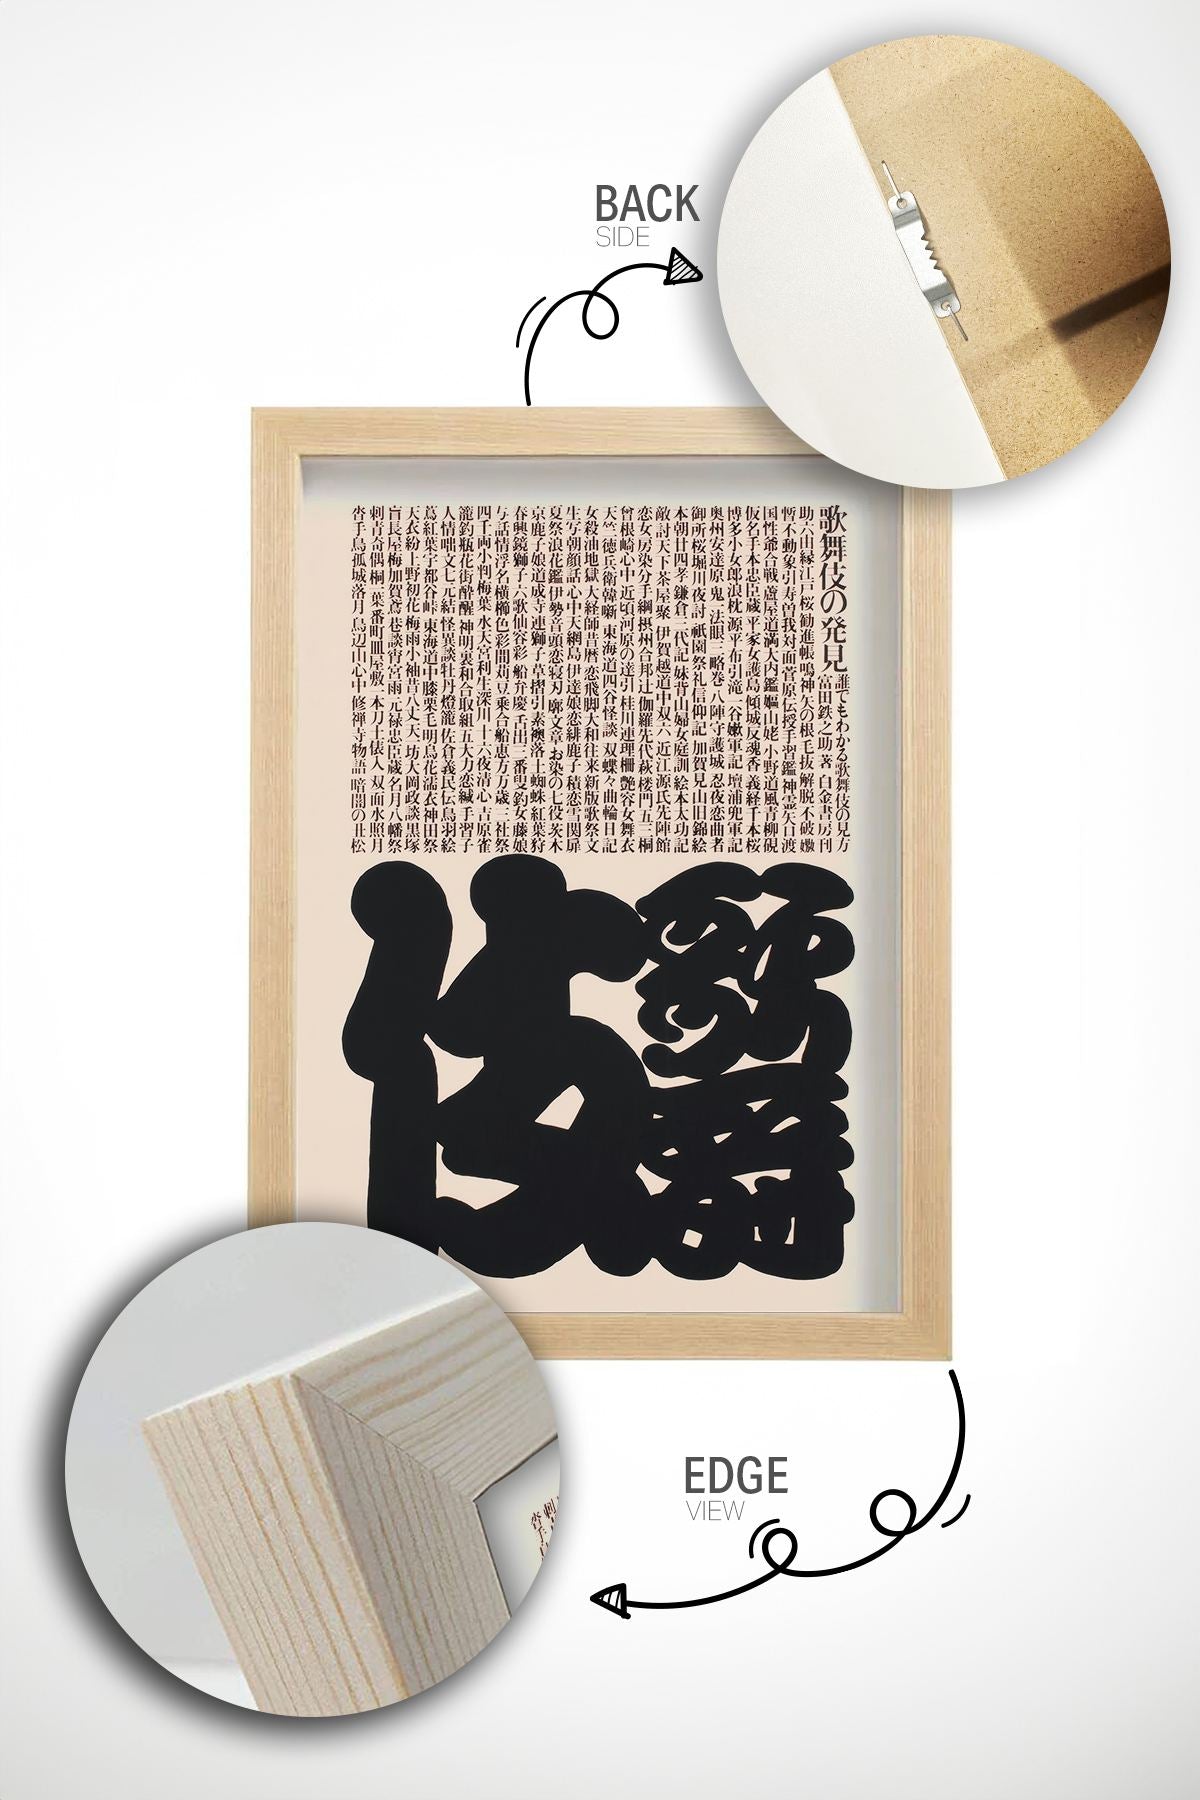 BACK
SIDE
歌舞伎の発見
誰でもわかる歌舞伎の見方
富田鉄之助 著 白金書房刊
助六由縁江戸桜 勧進帳 鳴神 矢の根 毛抜 解脱 不破 嫐
暫 不動 象引 寿曽我対面 菅原伝授手習鑑 神霊矢口渡
国性爺合戦 蘆屋道満大内鑑 嫗山姥 小野道風青柳硯
仮名手本忠臣蔵 平家女護島 傾城反魂香 義経千本桜
博多小女郎浪枕 源平布引滝 一谷嫩軍記 壇浦兜軍記
奥州安達原 鬼一法眼三略巻 八陣守護城 忍夜恋曲者
御所桜堀川夜討 祇園祭礼信仰記 加賀見山旧錦絵
本朝廿四孝 鎌倉三代記 妹背山婦女庭訓 絵本太功記
敵討天下茶屋聚 伊賀越道中双六 近江源氏先陣館
恋女房染分手綱 摂州合邦辻 伽羅先代萩 楼門五三桐
曾根崎心中 近頃河原の達引 桂川連理柵 艶容女舞衣
天竺徳兵衛韓噺 東海道四谷怪談 双蝶々曲輪日記
女殺油地獄 大経師昔暦 恋飛脚大和往来 新版歌祭文
生写朝顔話 心中天網島 伊達娘恋緋鹿子 積恋雪関扉
夏祭浪花鑑 伊勢音頭恋寝刃 廓文章 お染の七役 茨木
京鹿子娘道成寺 連獅子 草摺引 素襖落 土蜘蛛 紅葉狩
春興鏡獅子 六歌仙容彩 船弁慶 舌出三番叟 釣女 藤娘
与話情浮名横櫛 色彩間苅豆 乗合船恵方万歳 三社祭
四千両小判梅葉 水天宮利生深川 十六夜清心 吉原雀
籠釣瓶花街酔醒 神明恵和合取組 五大力恋緘 手習子
人情噺文七元結 怪異談牡丹燈籠 佐倉義民伝 鳥羽絵
蔦紅葉宇都谷峠 東海道中膝栗毛 明烏花濡衣 神田祭
天衣紛上野初花 梅雨小袖昔八丈 天一坊大岡政談 黒塚
盲長屋梅加賀鳶 巷談宵宮雨 元禄忠臣蔵 名月八幡祭
刺青奇偶 桐一葉 番町皿屋敷 一本刀土俵入 双面水照月
沓手鳥孤城落月 鳥辺山心中 修禅寺物語 暗闇の丑松
歌舞伎
EDGE
VIEW